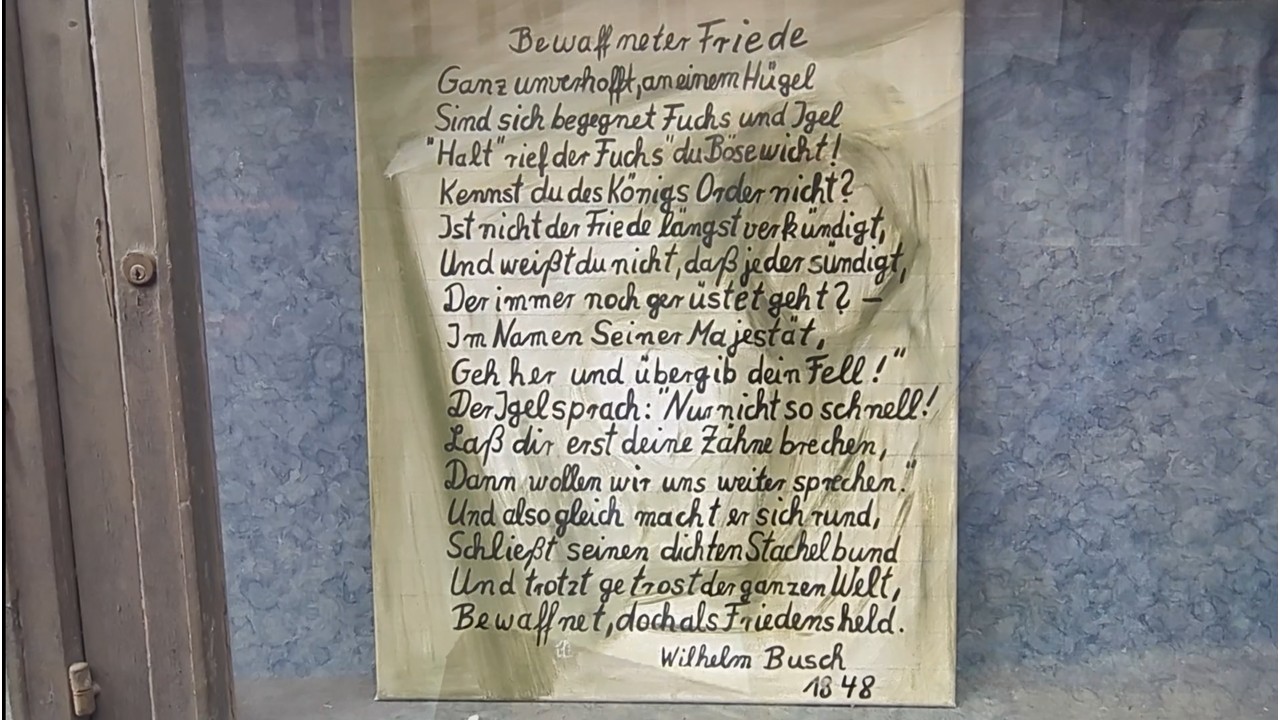 Bewaffneter Friede
Ganz unverhofft, an einem Hügel
Sind sich begegnet Fuchs und Igel
"Halt" rief der Fuchs "du Bösewicht!
Kennst du des Königs Order nicht?
Ist nicht der Friede längst verkündigt,
Und weißt du nicht, daß jeder sündigt,
Der immer noch gerüstet geht? –
Im Namen Seiner Majestät,
Geh her und übergib dein Fell!"
Der Igel sprach: "Nur nicht so schnell!
Laß dir erst deine Zähne brechen,
Dann wollen wir uns weiter sprechen."
Und alsogleich macht er sich rund,
Schließt seinen dichten Stachelbund
Und trotzt getrost der ganzen Welt,
Bewaffnet, doch als Friedensheld.
Wilhelm Busch
1848